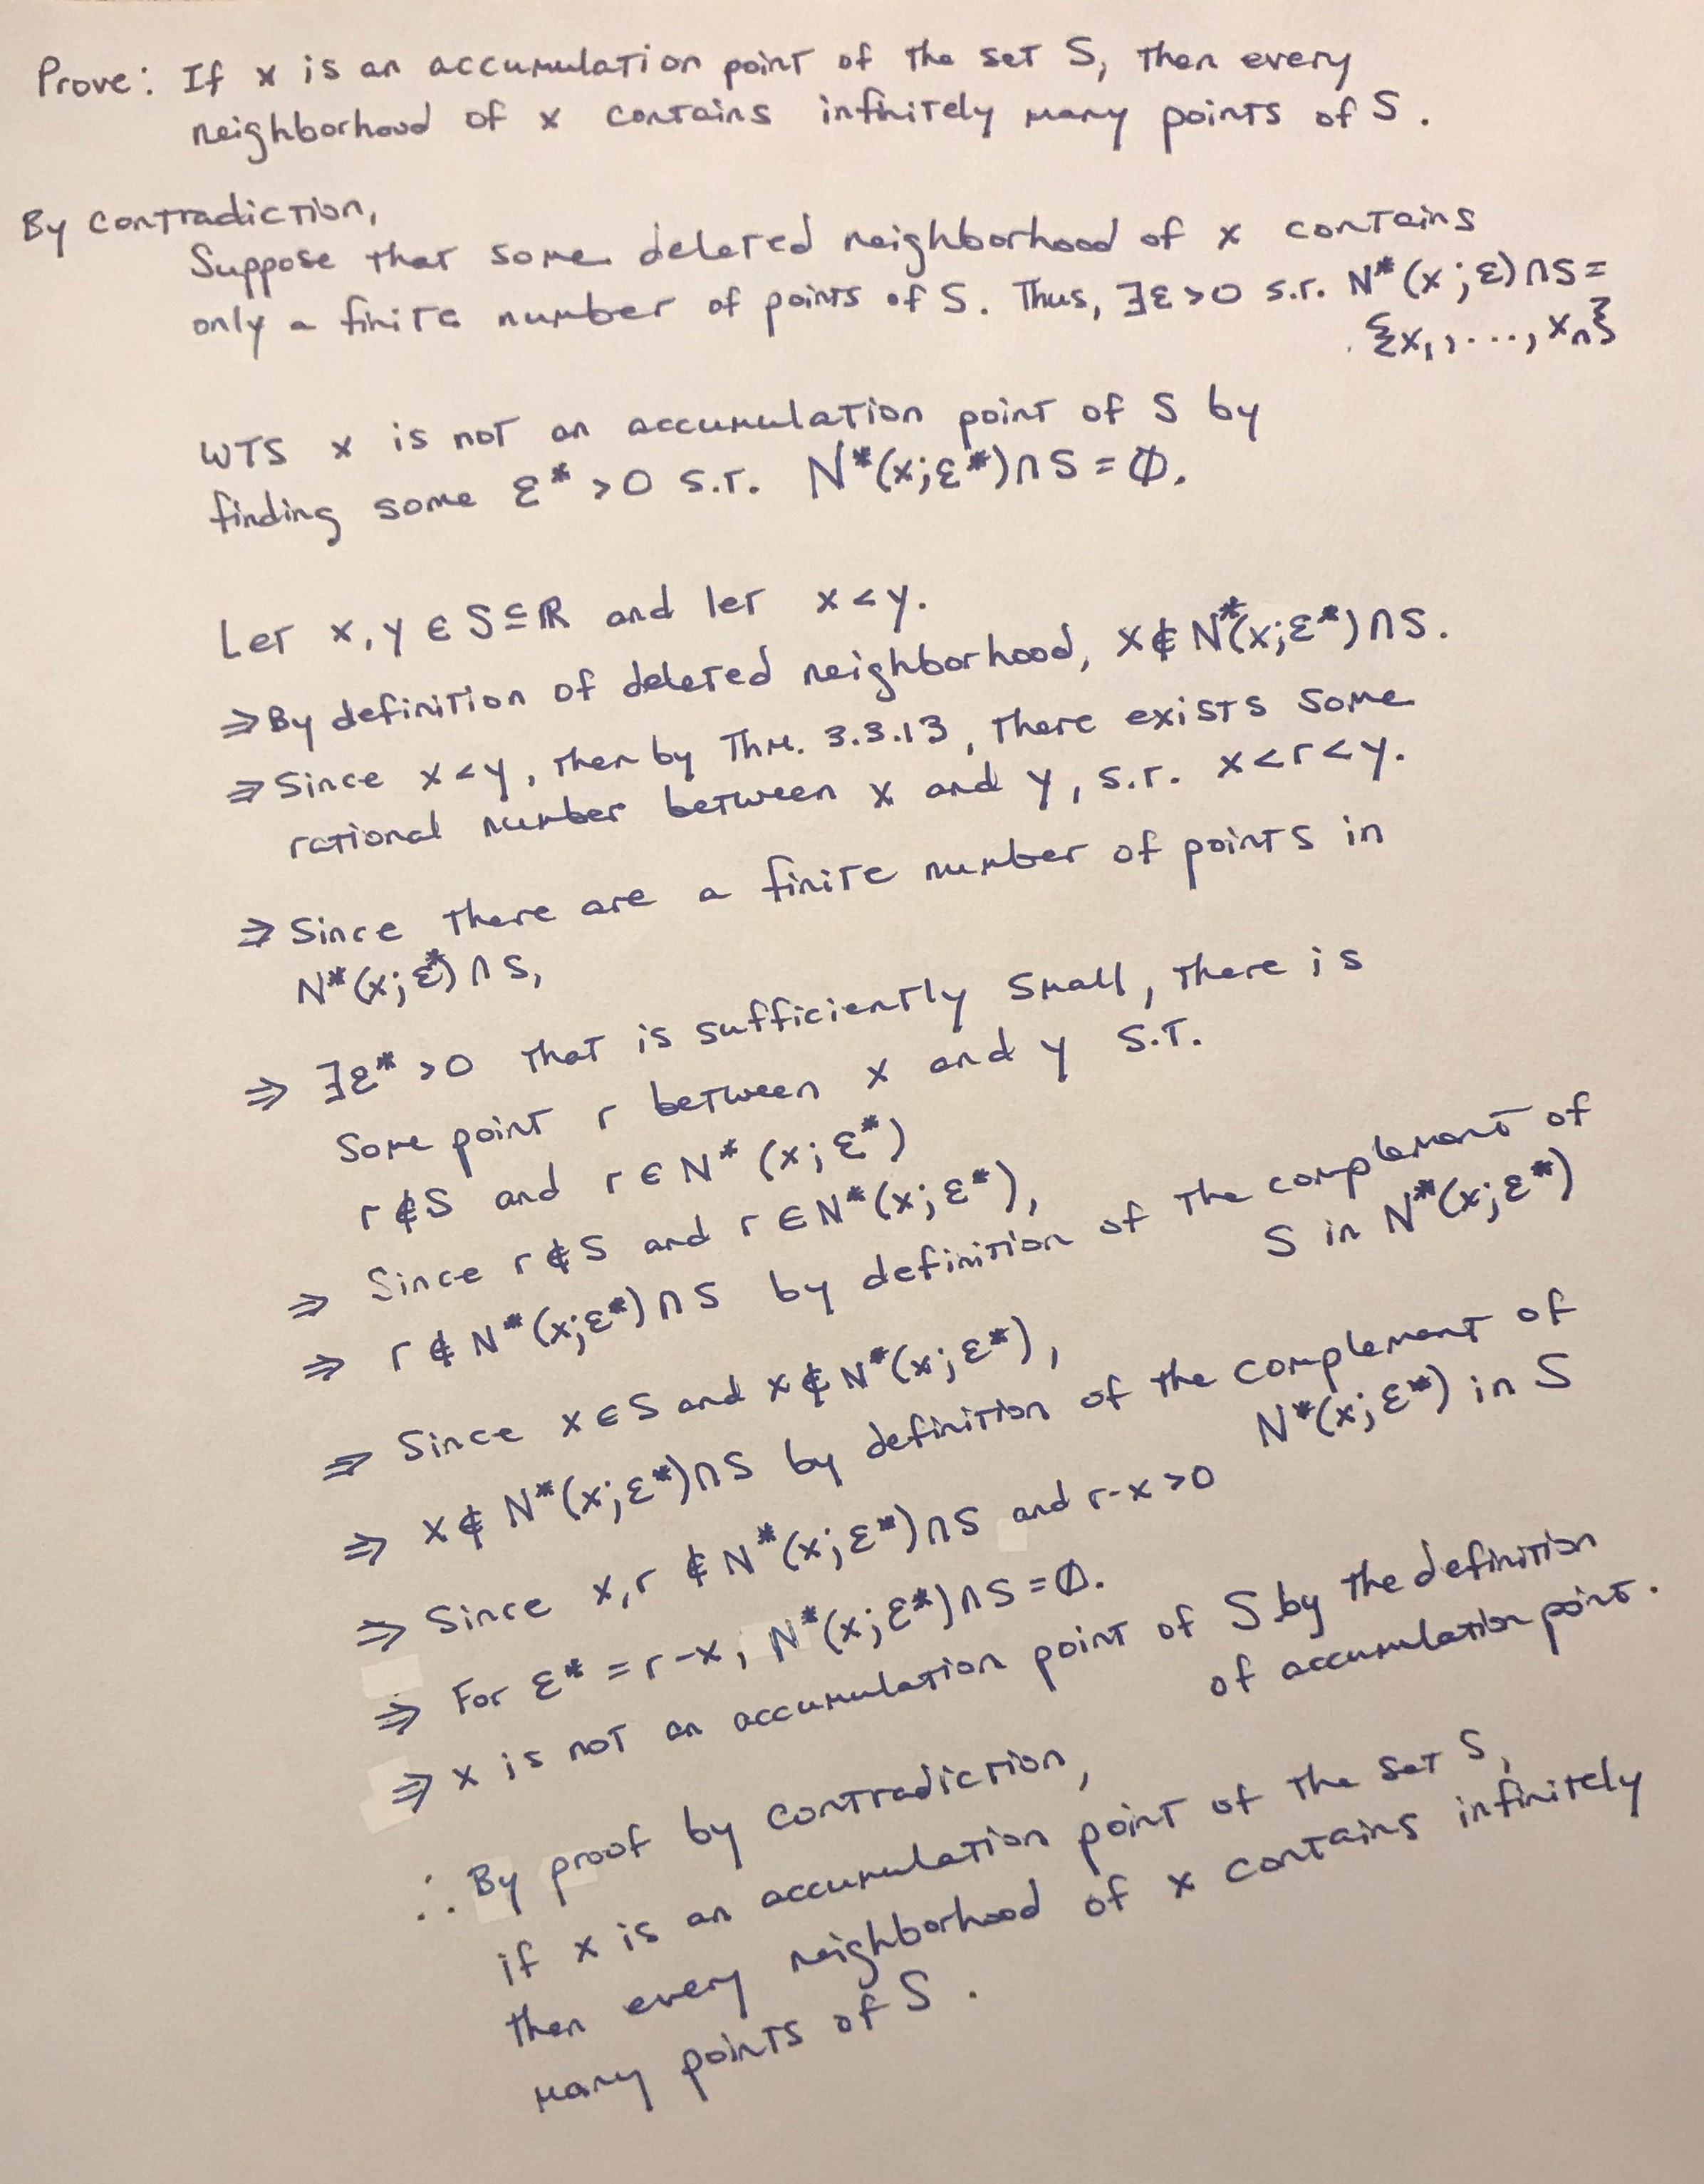 Prove: If x is an accumulation point of the set S, then every
neighborhood of x contains infinitely many points of S.
By contradiction,
Suppose that some deleted neighborhood of x contains
only a finite number of points of S. Thus, ∃ε>0 s.t. N*(x;ε)∩S=
{x₁,...,xₙ}
WTS x is not an accumulation point of S by
finding some ε*>0 s.t. N*(x;ε*)∩S=∅.
Let x,y∈S⊆ℝ and let x<y.
⇒By definition of deleted neighborhood, x∉N*(x;ε*)∩S.
⇒Since x<y, then by Thm. 3.3.13, there exists some
rational number between x and y, s.t. x<r<y.
⇒Since there are a finite number of points in
N*(x;ε*)∩S,
⇒ ∃ε*>0 that is sufficiently small, there is
some point r between x and y s.t.
r∉S and r∈N*(x;ε*)
⇒ Since r∉S and r∈N*(x;ε*),
⇒ r∉N*(x;ε*)∩S by definition of the complement of
S in N*(x;ε*)
⇒ Since x∈S and x∉N*(x;ε*),
⇒ x∉N*(x;ε*)∩S by definition of the complement of
N*(x;ε*) in S
⇒ Since x,r∉N*(x;ε*)∩S and r-x>0
⇒ For ε*=r-x, N*(x;ε*)∩S=∅.
⇒ x is not an accumulation point of S by the definition
of accumulation point.
∴ By proof by contradiction,
if x is an accumulation point of the set S,
then every neighborhood of x contains infinitely
many points of S.